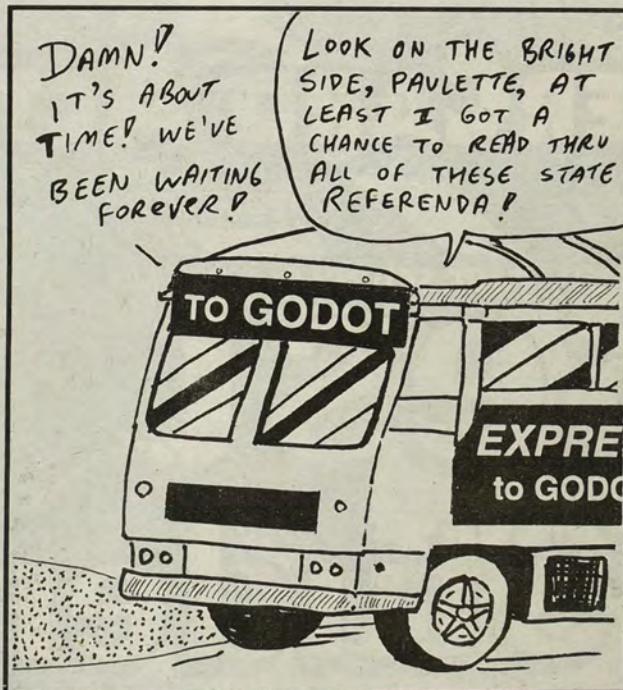 DAMN!
IT'S ABOUT
TIME! WE'VE
BEEN WAITING
FOREVER!
LOOK ON THE BRIGHT
SIDE, PAULETTE, AT
LEAST I GOT A
CHANCE TO READ THRU
ALL OF THESE STATE
REFERENDA!
TO GODOT
EXPRE
to GODO